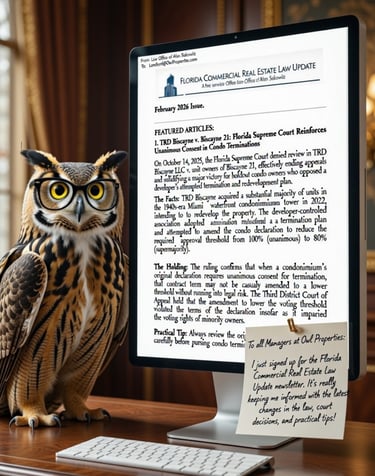 From: Law Office of Alan Sakowitz
To: Landlord@OwlProperties.com
FLORIDA COMMERCIAL REAL ESTATE LAW UPDATE
A free service Office law of Alan Sakowitz
February 2026 Issue.
FEATURED ARTICLES:
1. TRD Biscayne v. Biscayne 21: Florida Supreme Court Reinforces
Unanimous Consent in Condo Terminations
On October 14, 2025, the Florida Supreme Court denied review in TRD
Biscayne LLC v. unit owners of Biscayne 21, effectively ending appeals
and solidifying a major victory for holdout condo owners who opposed a
developer's attempted termination and redevelopment plan.
The Facts: TRD Biscayne acquired a substantial majority of units in
the 1940s-era Miami waterfront condominiums tower in 2022,
intending to to redevelop the property. The developer-controled
association adopted a termination plan
and attempted to amend the condo declaration to reduce the
required approval threshold from 100% (unanimous) to 80%
(supermajority).
The Holding: The ruling confirms that when a condominium's
original declaration requires unanimous consent for termination,
that contract term may not be casually amended to a lower
threshold without running into legal risk. The Third District Court of
Appeal held that the amendment to lower the voting threshold
violated the terms of the declaration insofar as it impaired
the voting rights of minority owners.
Practical Tip: Always review the ori
carefully before pursing condo termi
To all Managers at Owl Properties:
I just signed up for the Florida
Commercial Real Estate Law
Update newsletter. It's really
keeping me informed with the latest
changes in the law, court
decisions, and practical tips!